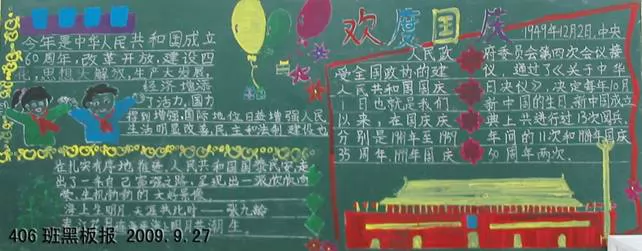 今年是中华人民共和国成立
60周年,改革开放,建设四
化,思想大解放,生产大发展,
经济增添
了活力,国力
得到增强,国际地位日益增强人民
生活明显改善,民主和法制建设也
在扎实有序地推进.人民共和国国泰民安,走
出了一条自己富强之路,呈现出一派欣欣向
荣,生机勃勃的大好景象.
海上生明月 天涯共此时 张九龄
欢度国庆
1949年12月2日,中央
人民政
府委员会第四次会议接
受全国政协的建
议,通过了《关于中华
人民共和国国庆
日决议》,决定每年10月
1日也就是我们
新中国的生日.新中国成立
以来,在国庆庆
典上共进行过13次国兵.
分别是1949年至1959
年间的11次和1984年国庆
35周年,1999年国庆
50周年两次.
406 班黑板报 2009.9.27